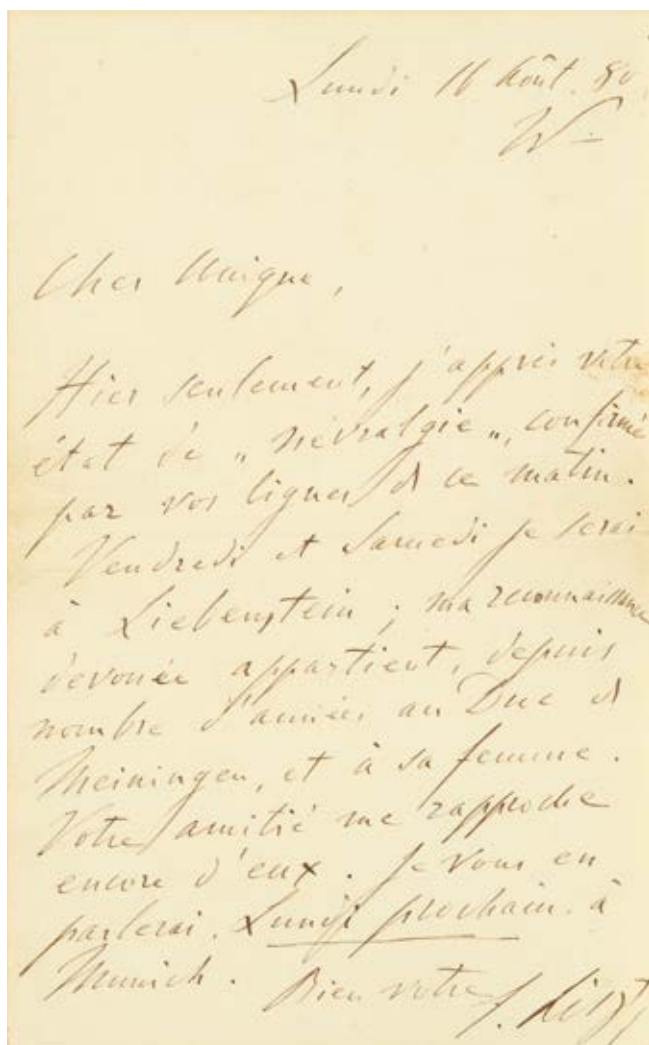 Lundi 16 Août. 80
W—
Cher Unique,
Hier seulement, j'appris votre
état de „ névralgie „, confirmé
par vos lignes d ce matin.
Vendredi et Samedi je serai
à Liebenstein ; ma reconnaissance
dévouée appartient, depuis
nombre d'années au Duc d
Meiningen, et à sa femme.
Votre amitié me rapproche
encore d'eux. Je vous en
parlerai. Lundi prochain. à
Munich.
Bien votre F. Liszt